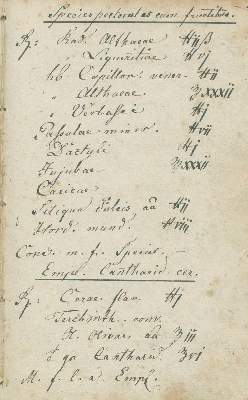 Species pectoral. es cum fructibus.
Rp: Rad. Althaeae ℔ijß
" Liquiritiae ℔vj
hb Capillor. vener. ℔ij
" Althaeae ℥xxxii
" Verbasci ℔j
Passulae minor. ℔vii
Dactyli ℔j
Jujubae ℥xxxii
Caricae
Siliqua dulcis aa ℔ij
Hord: mund. ℔viii
Conc. m. f. Species.
Emp. Cantharid. cer.
Rp: Cerae flav. ℔j
Terebinth. com.
Ol. Olivar. aa ℥iii
Canthari. ℥vi
M. f. l. a. Emp.